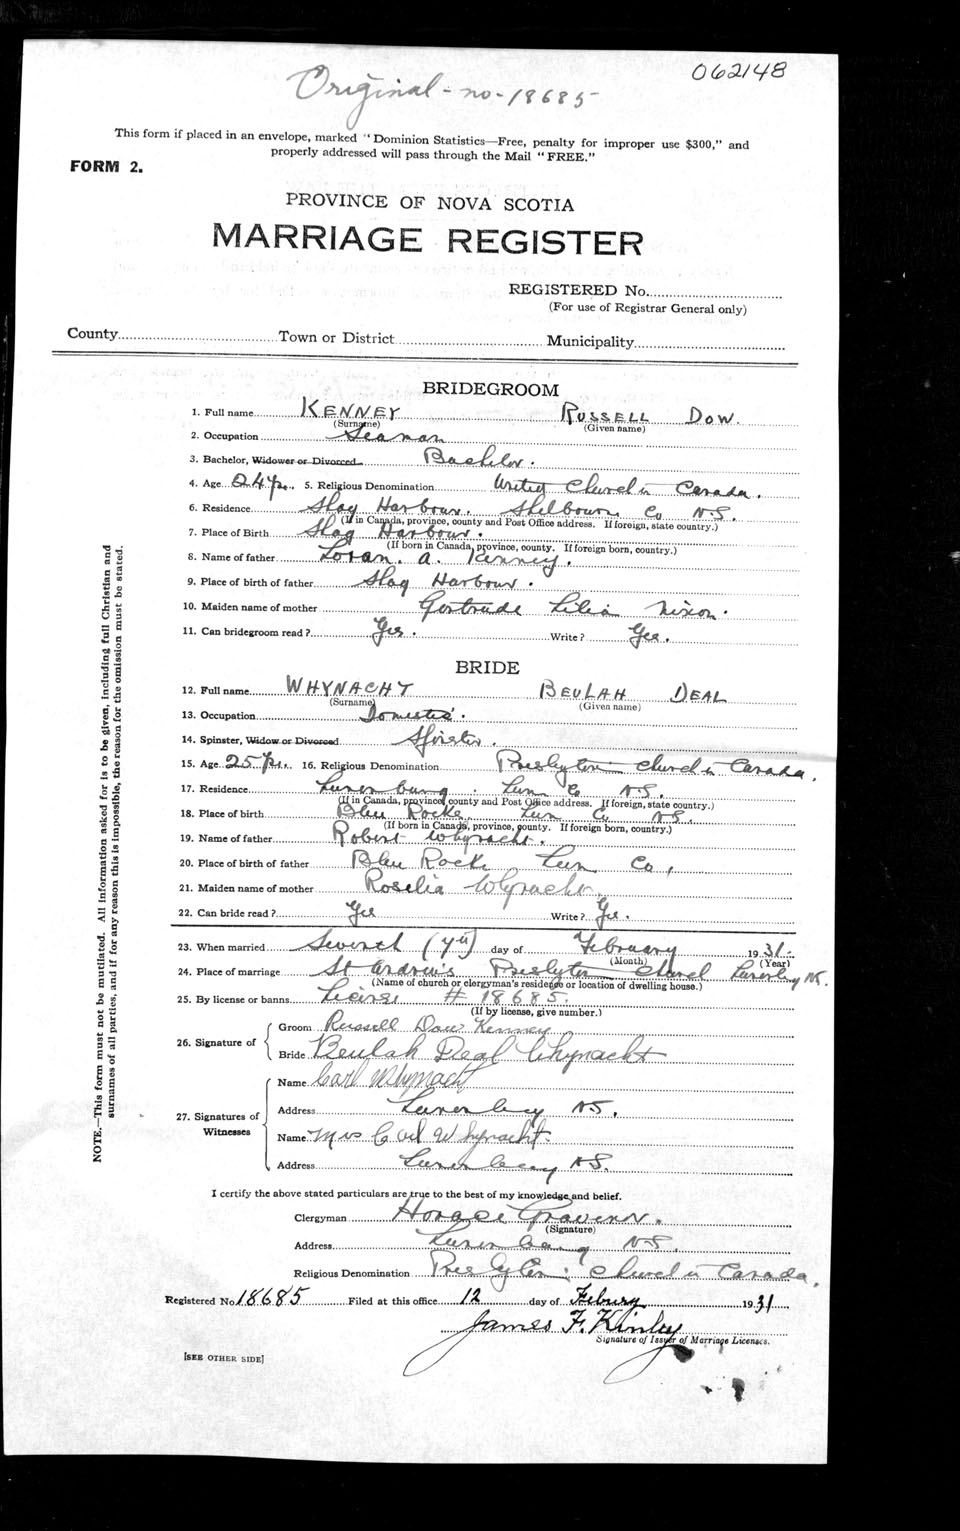 062148
Original - no - 18685
This form if placed in an envelope, marked "Dominion Statistics—Free, penalty for improper use $300," and
properly addressed will pass through the Mail "FREE."
FORM 2.
PROVINCE OF NOVA SCOTIA
MARRIAGE REGISTER
REGISTERED No.
(For use of Registrar General only)
County Town or District Municipality
BRIDEGROOM
1. Full name KENNEY RUSSELL DOW.
(Surname) (Given name)
2. Occupation Seaman
3. Bachelor, Widower or Divorced Bachelor.
4. Age 24 yrs. 5. Religious Denomination United Church in Canada.
6. Residence Shag Harbour. Shelbourn Co N.S.
(If in Canada, province, county and Post Office address. If foreign, state country.)
7. Place of Birth Shag Harbour.
(If born in Canada, province, county. If foreign born, country.)
8. Name of father Loran. A. Kenney.
9. Place of birth of father Shag Harbour.
10. Maiden name of mother Gertrude Lilia Nixon.
11. Can bridegroom read? Yes. Write? Yes.
BRIDE
12. Full name WHYNACHT BEULAH DEAL
(Surname) (Given name)
13. Occupation Domestic.
14. Spinster, Widow or Divorced Spinster.
15. Age 25 yrs. 16. Religious Denomination Presbyterian Church in Canada.
17. Residence Lunenburg. Lun Co N.S.
(If in Canada, province, county and Post Office address. If foreign, state country.)
18. Place of birth Blue Rocks Lun Co N.S.
(If born in Canada, province, county. If foreign born, country.)
19. Name of father Robert Whynacht.
20. Place of birth of father Blue Rocks Lun Co,
21. Maiden name of mother Roselia Whynacht
22. Can bride read? Yes Write? Yes.
23. When married Seventh (7th) day of February 1931.
(Month) (Year)
24. Place of marriage St Andrew's Presbyterian Church Lunenburg NS.
(Name of church or clergyman's residence or location of dwelling house.)
25. By license or banns License # 18685.
(If by license, give number.)
26. Signature of
Groom Russell Dow Kenney
Bride Beulah Deal Whynacht
27. Signatures of Witnesses
Name Carl Whynacht
Address Lunenburg N.S.
Name Mrs Carl Whynacht.
Address Lunenburg N.S.
I certify the above stated particulars are true to the best of my knowledge and belief.
Clergyman Horace
(Signature)
Address Lunenburg N.S.
Religious Denomination Presbyterian Church in Canada.
Registered No. 18685 Filed at this office 12 day of Febury 1931
James F. Kinley
Signature of Issuer of Marriage Licenses.
[SEE OTHER SIDE]
NOTE.—This form must not be mutilated. All information asked for is to be given, including full Christian and
surnames of all parties, and if for any reason this is impossible, the reason for the omission must be stated.